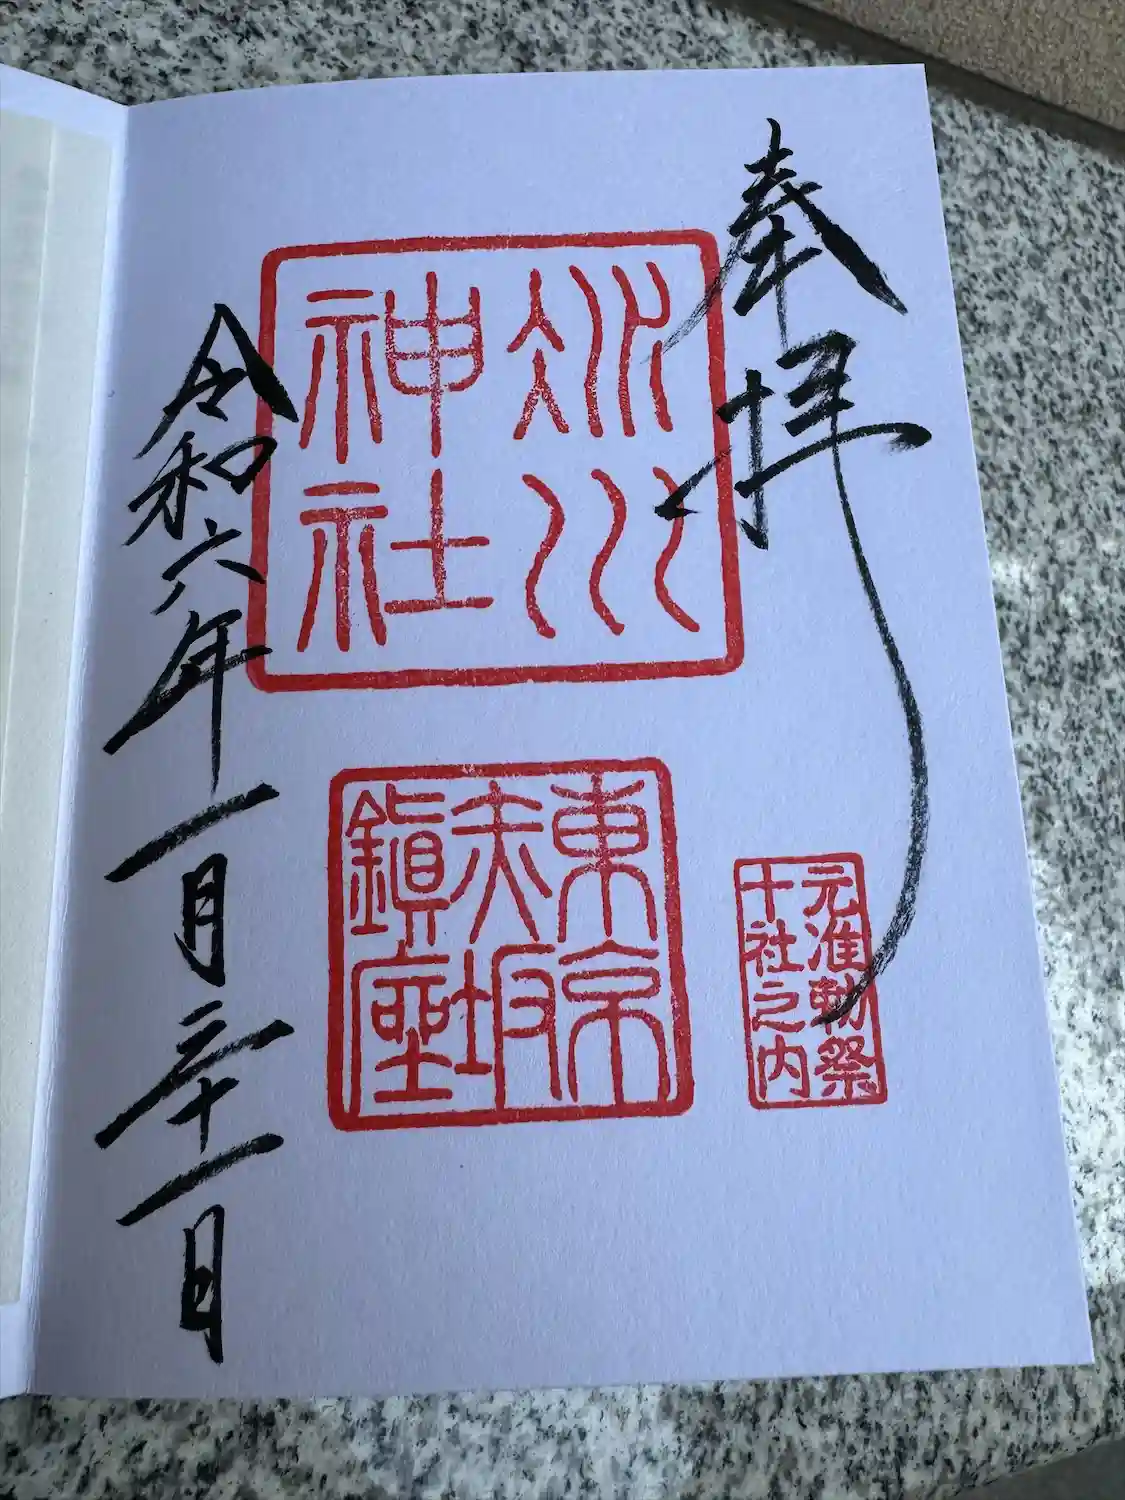 奉拝
氷川
神社
東京
赤坂
鎮座
元准勅祭
十社之内
令和六年一月三十一日